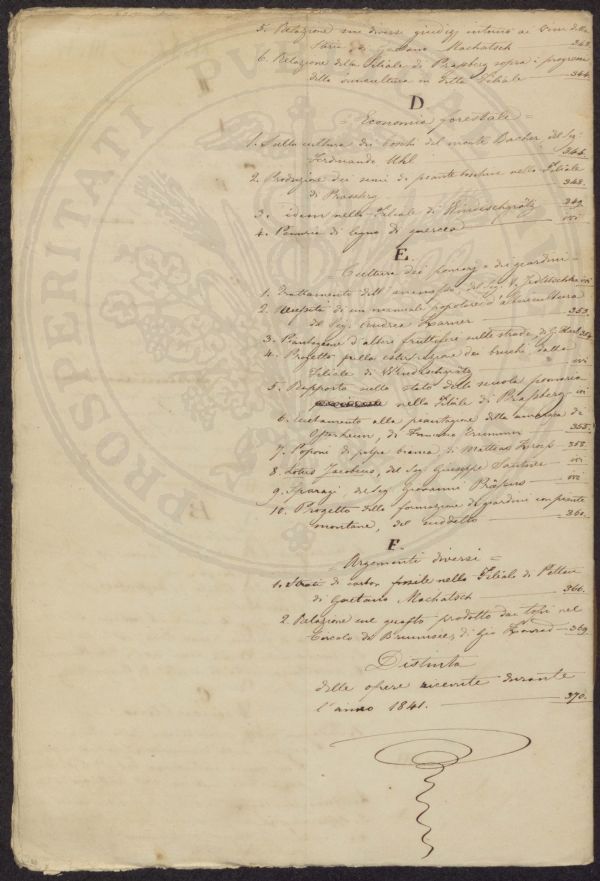 5. Relazione sui diversi giudizj intorno ai vini della
Stiria, di Gaetano Machatsch 343.
6. Relazione della Filiale di Prassberg sopra i progressi
della in detta Filiale 344.
D
= Economia forestale =
1. Sulla cultura dei boschi del monte Bacher, del Sig.
Ferdinando Uhl 344.
2. Produzione dei semi di piante boschive nella Filiale
di Prassberg 348.
3. idem nella Filiale di Windischgrätz 349.
4. Penuria di legno di quercia ivi
E.
= Cultura dei pomarj e dei giardini =
1. Trattamento dell' del Sig. V. ivi
2. Necessità di un manuale popolare d'
del Sig. Andrea 353.
3. Piantagione d'alberi fruttiferi sulle strade, di G.
4. Progetto pella estirpazione dei bruchi, dalla ivi
Filiale di Windischgrätz
5. Rapporto sullo stato della scuola pomaria
nella Filiale di Prassberg ivi
6. alla piantagione della amarasca di
Ostheim, di Francesco Trummer 355.
7. Poponi di polpa bianca, di Matteas 358.
8. Lotus Jacobeus, del Sig. Giuseppe ivi
9. Sparagi, del Sig. Giovanni ivi
10. Progetto della formazione di giardini con piante
montane, del suddetto 360.
F.
= Argomenti diversi =
1. Strati di carbon fossile nella Filiale di Pettau
di Gaetano Machatsch 366.
2. Relazione sul guasto prodotto dai topi nel
Circolo di di Gio 369.
Distinta
delle opere ricevute durante
l'anno 1841. 370.
PROSPERITATI PUB